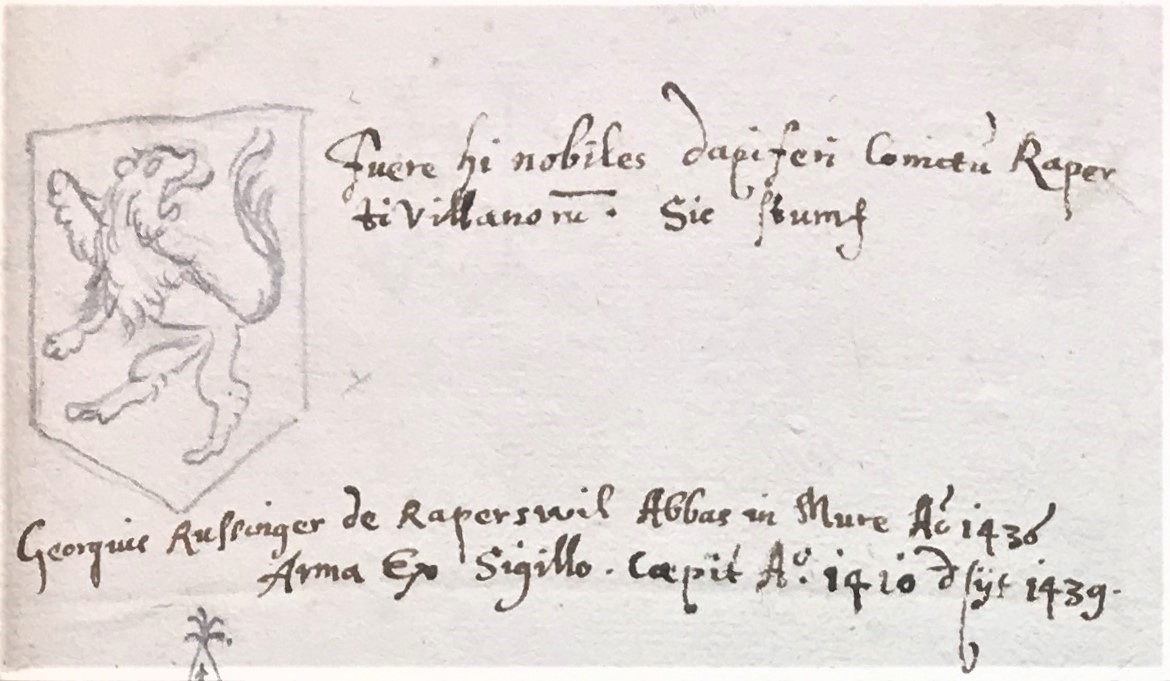 Fuere hi nobiles dapiferi Comitū Raper
tivillanorū. Sic Stumf
Georgius Russinger de Raperswil Abbas in Mure Aō 1436
Arma Ex Sigillo. Cœpit Aō. 1410 dsijt 1439.